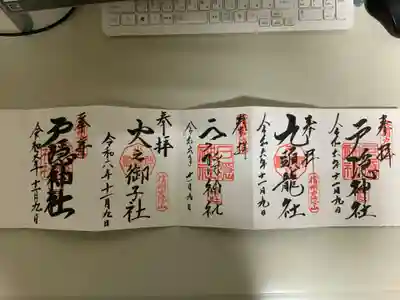 奉拝
戸隠神社
令和六年十一月九日
奉拝
九頭龍社
令和六年十一月九日
奉拝
戸隠神社
令和六年十一月九日
奉拝
火之御子社
令和六年十一月九日
奉拝
戸隠神社
令和六年十一月九日